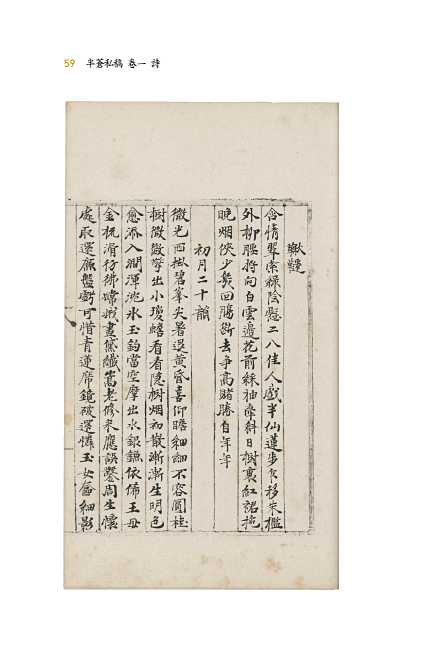 59 半蒼私稿 卷一 詩
鞦韆
含情翠索綠陰懸二八佳人戲半仙蓮步乍移朱檻
外柳腰將向白雲邊花前綵袖牽斜日樹裏紅裙拖
晚烟俠少幾回腸斷去爭高賭勝自年年
初月二十韻
微光西掛碧峯尖暑退黃昏喜仰瞻細細不容圓桂
樹微微擎出小瓊蟾看看隱樹烟初散漸漸生明色
愈添入澗渾沈水玉鈎當空摩出水銀鐮依俙王母
金梳滑彷彿嫦娥畫黛纖萬老修來應誤鑿周生懷
處取還廉盤虧可惜青蓮席鏡破還慎玉女奩細影